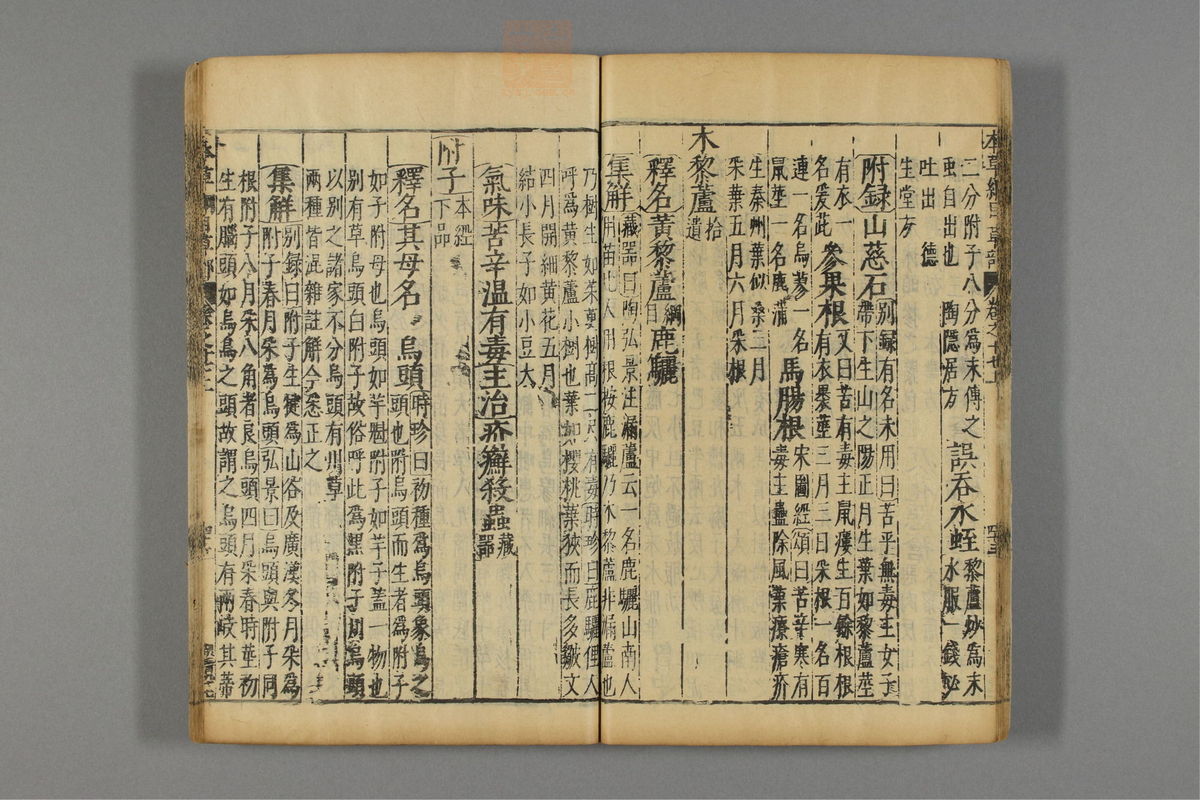 本草綱目草部 卷之十七上
二分附子八分為末傳之
虫自出也 陶隱居方 誤吞水蛭 黎蘆炒為末
吐出 德 水服一錢必
生堂方
附録山慈石 别録有名未用曰苦平無毒主女子
帶下生山之陽正月生葉如黎蘆莖
有衣一 參果根 又曰苦有毒主鼠瘻生百餘根根
名爰茈 有衣裹莖三月三日采根一名百
連一名烏蓼一名 馬腸根 宋圖經頌曰苦辛寒有
鼠莖一名鹿蒲 毒主蠱除風葉療瘡疥
生秦州葉似桑三月
采葉五月六月采根
木黎蘆 拾遺
釋名黄黎蘆 綱目 鹿驪
集解 藏器曰陶弘景注漏蘆云一名鹿驪山南人
用苗北人用根按鹿驪乃木黎蘆非漏蘆也
乃樹生如茱萸樹高二尺有毒時珍曰鹿驪俚人
呼為黄黎蘆小樹也葉如櫻桃葉狹而長多皺文
四月開細黄花五月
結小長子如小豆大
氣味苦辛温有毒主治疥癬殺蟲 藏器
附子 本經下品
釋名其母名 烏頭 時珍曰初種為烏頭象烏之
頭也附烏頭而生者為附子
如子附母也烏頭如芋魁附子如芋子蓋一物也
别有草烏頭白附子故俗呼此為黑附子川烏頭
以别之諸家不分烏頭有川草
兩種皆混雜註解今悉正之
集解 别録曰附子生犍為山谷及廣漢冬月采為
附子春月采為烏頭弘景曰烏頭與附子同
根附子八月采八角者良烏頭四月采春時莖初
生有腦頭如烏鳥之頭故謂之烏頭有兩岐其蒂